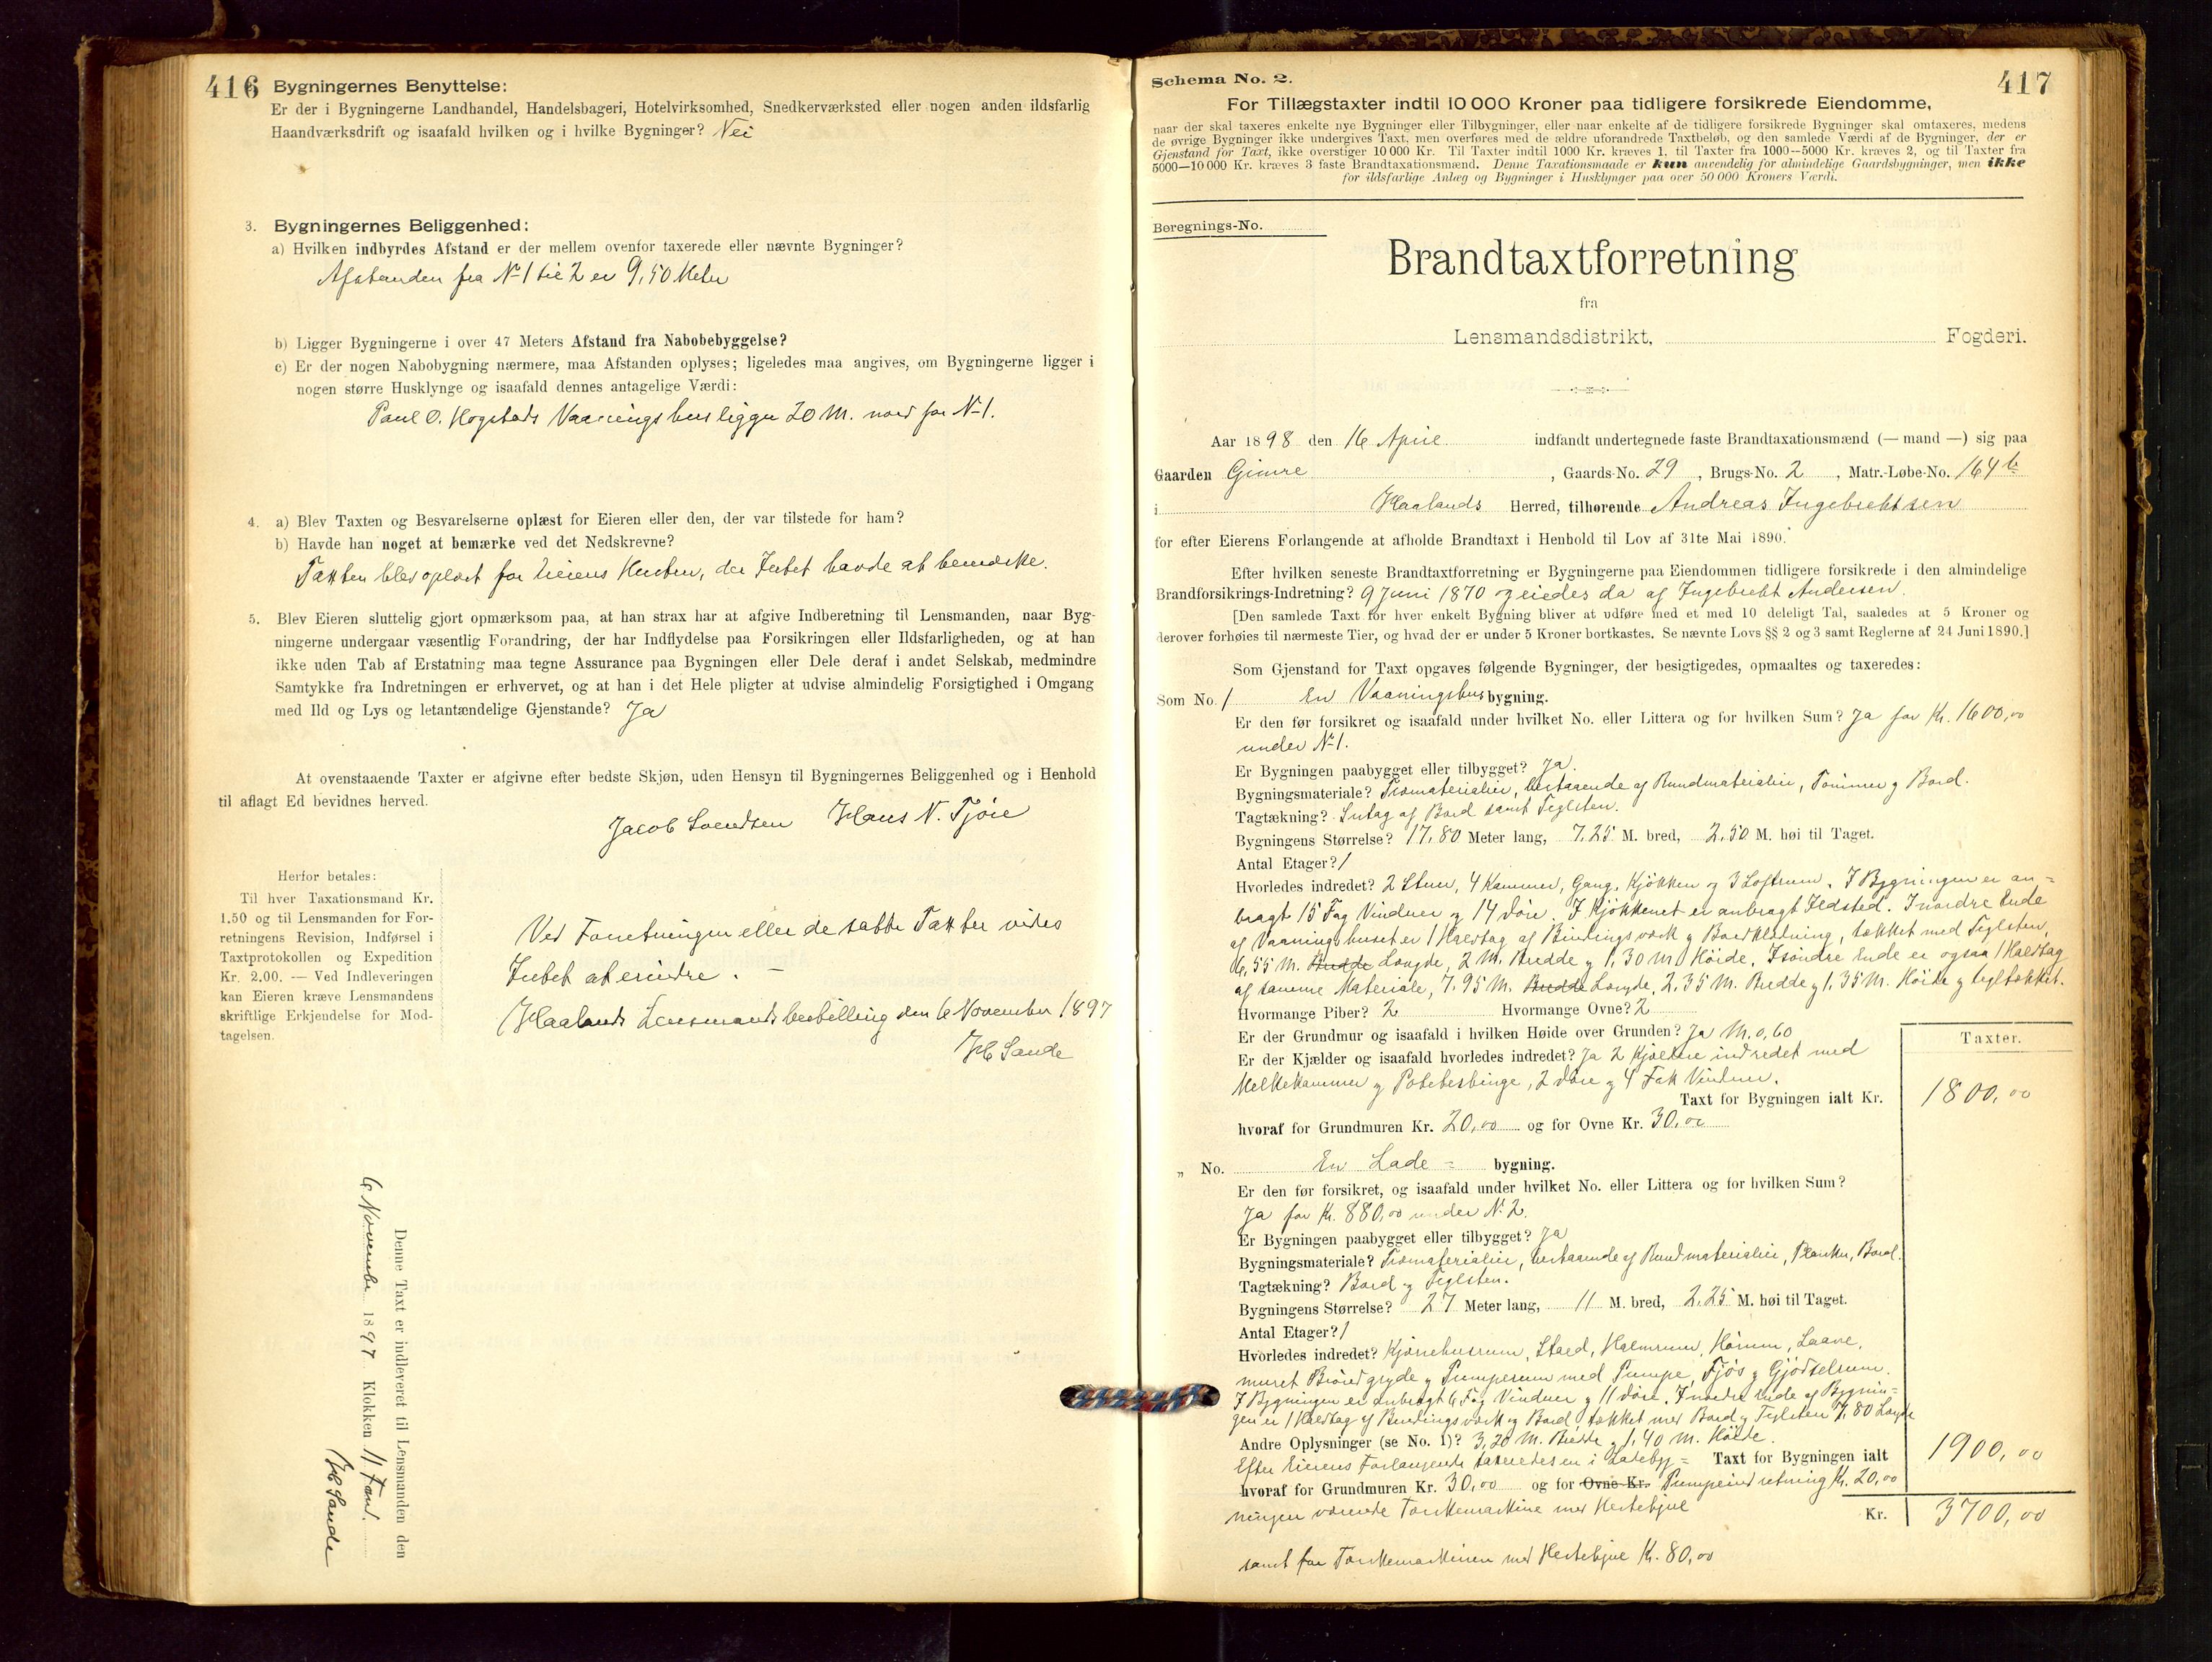 416
Bygningernes Benyttelse:
Er der i Bygningerne Landhandel, Handelsbageri, Hotelvirksomhed, Snedkerværksted eller nogen anden ildsfarlig
Haandværksdrift og isaafald hvilken og i hvilke Bygninger? Nei
3. Bygningernes Beliggenhed:
a) Hvilken indbyrdes Afstand er der mellem ovenfor taxerede eller nævnte Bygninger?
Afstanden fra No 1 til 2 er 9,50 Meter
b) Ligger Bygningerne i over 47 Meters Afstand fra Nabobebyggelse?
c) Er der nogen Nabobygning nærmere, maa Afstanden oplyses; ligeledes maa angives, om Bygningerne ligger i
nogen større Husklynge og isaafald dennes antagelige Værdi:
Paul O. Hogstads Vaaningshus ligger 20 M. nord for No 1.
4. a) Blev Taxten og Besvarelserne oplæst for Eieren eller den, der var tilstede for ham?
b) Havde han noget at bemærke ved det Nedskrevne?
Taxten blev oplæst for Eierens Hustru, der Intet havde at bemærke.
5. Blev Eieren sluttelig gjort opmærksom paa, at han strax har at afgive Indberetning til Lensmanden, naar Byg-
ningerne undergaar væsentlig Forandring, der har Indflydelse paa Forsikringen eller Ildsfarligheden, og at han
ikke uden Tab af Erstatning maa tegne Assurance paa Bygningen eller Dele deraf i andet Selskab, medmindre
Samtykke fra Indretningen er erhvervet, og at han i det Hele pligter at udvise almindelig Forsigtighed i Omgang
med Ild og Lys og letantændelige Gjenstande? Ja
At ovenstaaende Taxter er afgivne efter bedste Skjøn, uden Hensyn til Bygningernes Beliggenhed og i Henhold
til aflagt Ed bevidnes herved.
Jacob Svendsen Hans N. Tjøie
Herfor betales:
Til hver Taxationsmand Kr.
1.50 og til Lensmanden for For-
retningens Revision, Indførsel i
Taxtprotokollen og Expedition
Kr. 2.00. — Ved Indleveringen
kan Eieren kræve Lensmandens
skriftlige Erkjendelse for Mod-
tagelsen.
Ved Forretningen eller de satte Taxter vides
Intet at erindre. —
Haalands Lensmandsbestilling den 6 November 1897
Sande
Denne Taxt er indleveret til Lensmanden den
6 November 1897 Klokken 11 Form.
Sande
Schema No. 2.
417
For Tillægstaxter indtil 10 000 Kroner paa tidligere forsikrede Eiendomme,
naar der skal taxeres enkelte nye Bygninger eller Tilbygninger, eller naar enkelte af de tidligere forsikrede Bygninger skal omtaxeres, medens
de øvrige Bygninger ikke undergives Taxt, men overføres med de ældre uforandrede Taxtbeløb, og den samlede Værdi af de Bygninger, der er
Gjenstand for Taxt, ikke overstiger 10 000 Kr. Til Taxter indtil 1000 Kr. kræves 1, til Taxter fra 1000—5000 Kr. kræves 2, og til Taxter fra
5000—10 000 Kr. kræves 3 faste Brandtaxationsmænd. Denne Taxationsmaade er kun anvendelig for almindelige Gaardsbygninger, men ikke
for ildsfarlige Anlæg og Bygninger i Husklynger paa over 50 000 Kroners Værdi.
Beregnings-No.
Brandtaxtforretning
fra
Lensmandsdistrikt, Fogderi.
Aar 1898 den 16 April indfandt undertegnede faste Brandtaxationsmænd (— mand —) sig paa
Gaarden Gimre, Gaards-No. 29, Brugs-No. 2, Matr.-Løbe-No. 164 b
i Haalands Herred, tilhørende Andreas Ingebrektsen
for efter Eierens Forlangende at afholde Brandtaxt i Henhold til Lov af 31te Mai 1890.
Efter hvilken seneste Brandtaxtforretning er Bygningerne paa Eiendommen tidligere forsikrede i den almindelige
Brandforsikrings-Indretning? 9 Juni 1870 og eiedes da af Ingebrekt Andersen.
[Den samlede Taxt for hver enkelt Bygning bliver at udføre med et med 10 deleligt Tal, saaledes at 5 Kroner og
derover forhøies til nærmeste Tier, og hvad der er under 5 Kroner bortkastes. Se nævnte Lovs §§ 2 og 3 samt Reglerne af 24 Juni 1890.]
Som Gjenstand for Taxt opgaves følgende Bygninger, der besigtigedes, opmaaltes og taxeredes:
Som No. 1 En Vaaningshus bygning.
Er den før forsikret og isaafald under hvilket No. eller Littera og for hvilken Sum? Ja for Kr. 1600,00
under No 1.
Er Bygningen paabygget eller tilbygget? Ja.
Bygningsmateriale? Træmaterialier, bestaaende af Bundmaterialier, Tømmer og Bord.
Tagtækning? Sutag af Bord samt Teglsten.
Bygningens Størrelse? 17,80 Meter lang, 7,25 M. bred, 2,50 M. høi til Taget.
Antal Etager? 1
Hvorledes indredet? 2 Stuer, 4 Kammer, Gang, Kjøkken og 3 Loftrum. I Bygningen er an-
bragt 15 Fag Vinduer og 14 Døre. I Kjøkkenet er anbragt Ildsted. I nordre Ende
af Vaaningshuset er 1 Halvtag af Bindingsværk og Bordklædning, tækket med Teglsten,
6,55 M. Bredde Længde, 2 M. Bredde og 1,30 M. Høide. I søndre Ende er ogsaa 1 Halvtag
af samme Materiale, 7,95 M. Bredde Længde, 2,35 M. Bredde og 1,35 M. Høide og tegltækket.
Hvormange Piber? 2 Hvormange Ovne? 2
Er der Grundmur og isaafald i hvilken Høide over Grunden? Ja M. 0,60
Er der Kjælder og isaafald hvorledes indredet? Ja 2 Kjældere indredet med
Melkekammer og Potetesbinge, 2 Døre og 4 Fag Vinduer.
Taxter.
Taxt for Bygningen ialt Kr. 1800,00
hvoraf for Grundmuren Kr. 20,00 og for Ovne Kr. 30,00
„ No. En Lade- bygning.
Er den før forsikret, og isaafald under hvilket No. eller Littera og for hvilken Sum?
Ja for Kr. 880,00 under No 2.
Er Bygningen paabygget eller tilbygget? Ja
Bygningsmateriale? Træmaterialier, bestaaende af Bundmaterialier, Planker, Bord.
Tagtækning? Bord og Teglsten.
Bygningens Størrelse? 27 Meter lang, 11 M. bred, 2,25 M. høi til Taget.
Antal Etager? 1
Hvorledes indredet? Kjørrehusrum, Stald, Halmrum, Hørum, Laave,
muret Gryde og Pumperum med Pumpe, Fjøs og Gjødselrum.
I Bygningen er anbragt 6 Fag Vinduer og 11 Døre. I nordre Ende af Bygnin-
gen er 1 Halvtag af Bindingsværk og Bord, tækket med Bord og Teglsten 7,80 Længde
Andre Oplysninger (se No. 1)? 3,20 M. Bredde og 1,40 M. Høide.
Efter Eierens Forlangende taxeredes en i Ladebyg- Taxt for Bygningen ialt 1900,00
hvoraf for Grundmuren Kr. 30,00 og for Ovne Kr. Pumpeindretning Kr. 20,00
ningen værende Tærskemaskine med Hestehjul
Kr. 3700,00
samt for Tærskemaskinen med Hestehjul Kr. 80,00